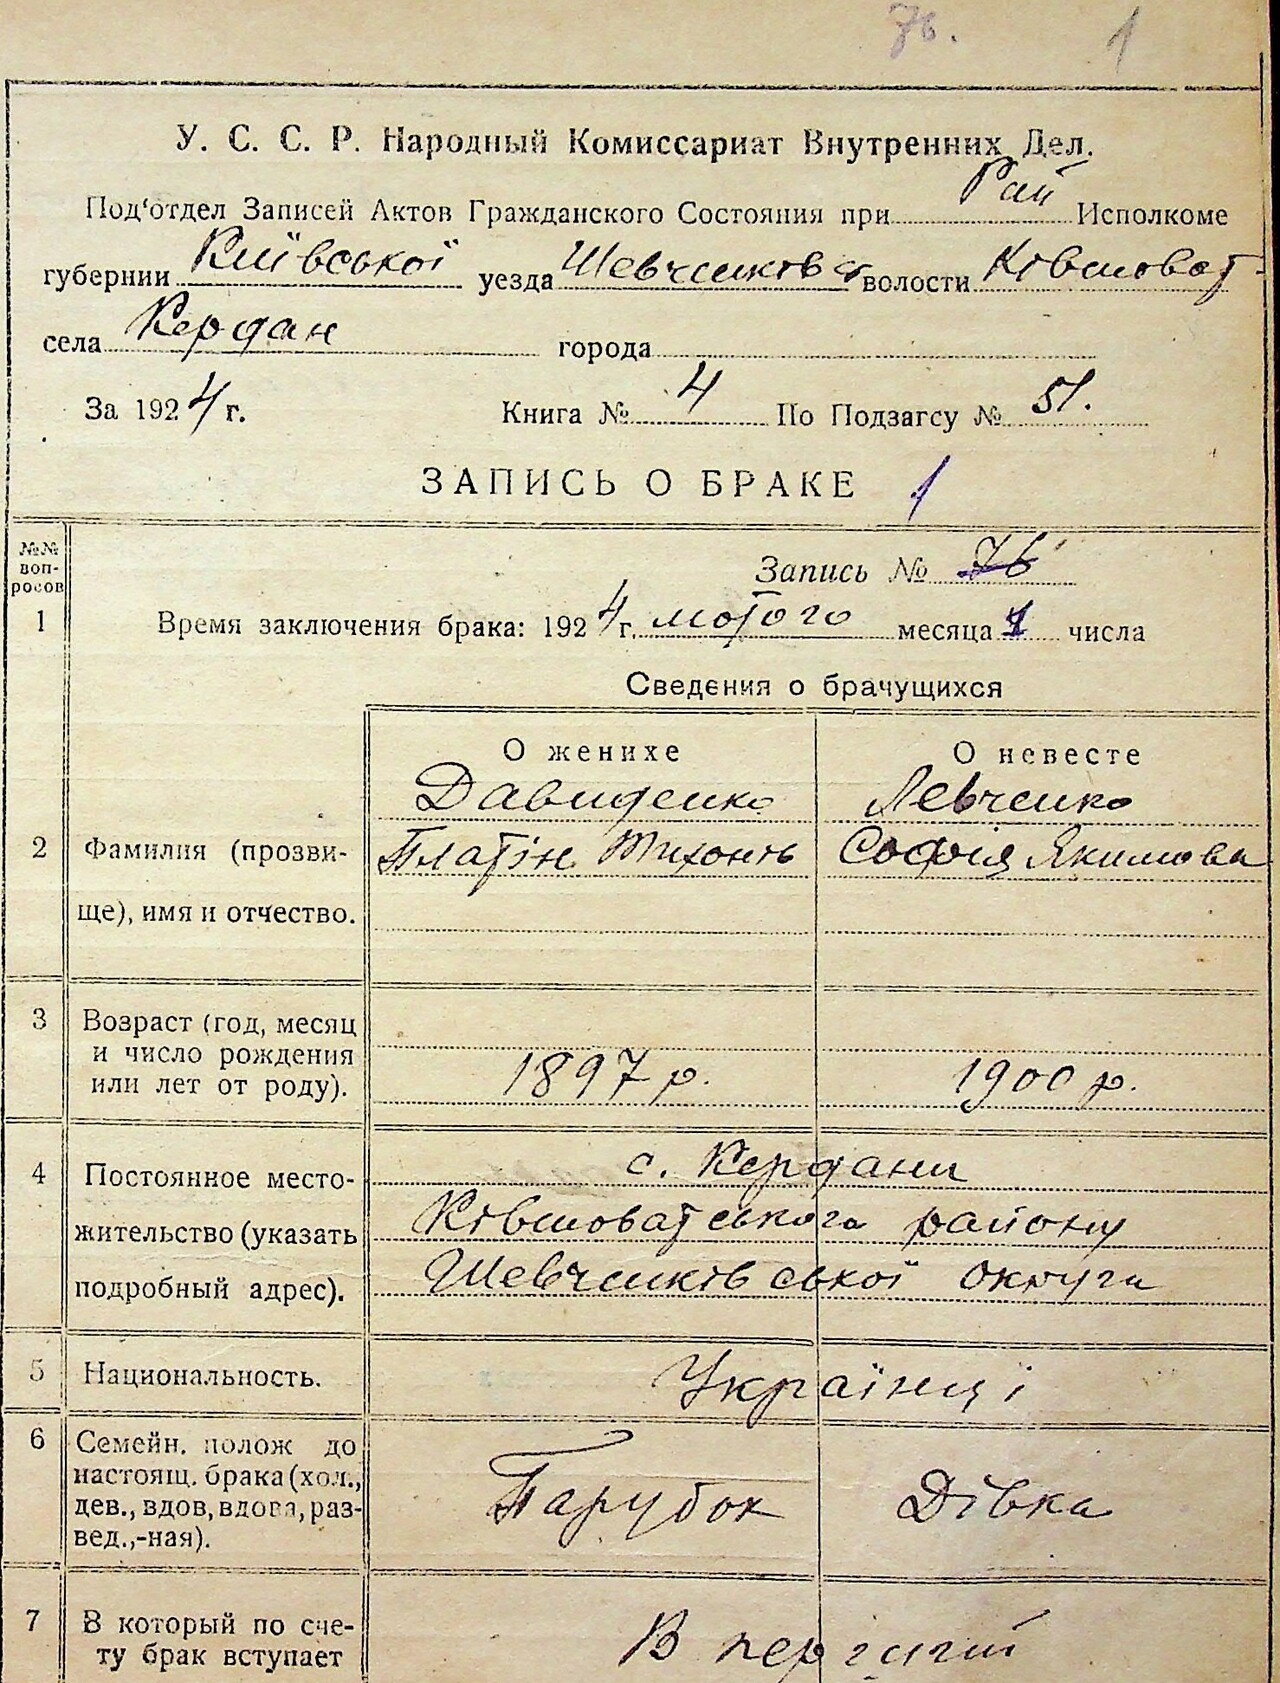 76. 1
У. С. С. Р. Народный Комиссариат Внутренних Дел.
Под‘отдел Записей Актов Гражданского Состояния при Рай Исполкоме
губернии Київської уезда Шевченківс волости Ківшоват
села Кердан города
За 1924 г. Книга № 4 По Подзагсу № 51.
ЗАПИСЬ О БРАКЕ 1
№№ воп-росов
Запись № 76
1 Время заключения брака: 1924 г. лютого месяца 1 числа
Сведения о брачущихся
О женихе О невесте
Давиденко Левченко
2 Фамилия (прозви- Платін Тихонів Софія Якимова
ще), имя и отчество.
3 Возраст (год, месяц
и число рождения
или лет от роду). 1897 р. 1900 р.
с. Кердани
4 Постоянное место-
жительство (указать Ківшоватського району
подробный адрес). Шевченківської округи
5 Национальность. Українці
6 Семейн. полож до
настоящ. брака (хол.,
дев., вдов, вдова, раз- Парубок Дівка
вед.,-ная).
7 В который по сче-
ту брак вступает В перший